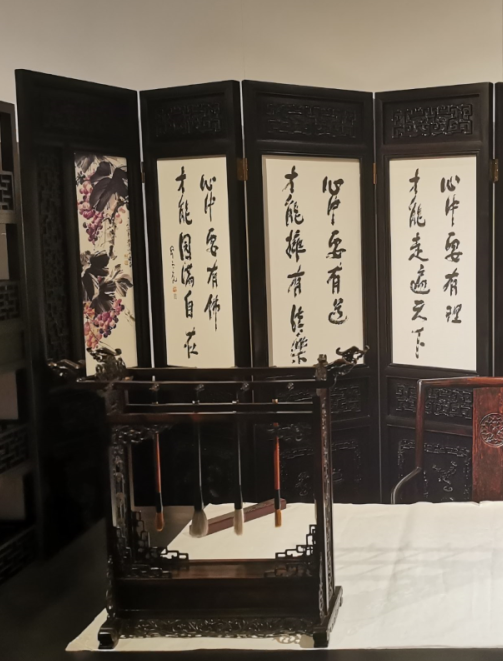 心中要有理
才能走遍天下
心中要有道
才能擁有快樂
心中要有佛
才能圓滿自在